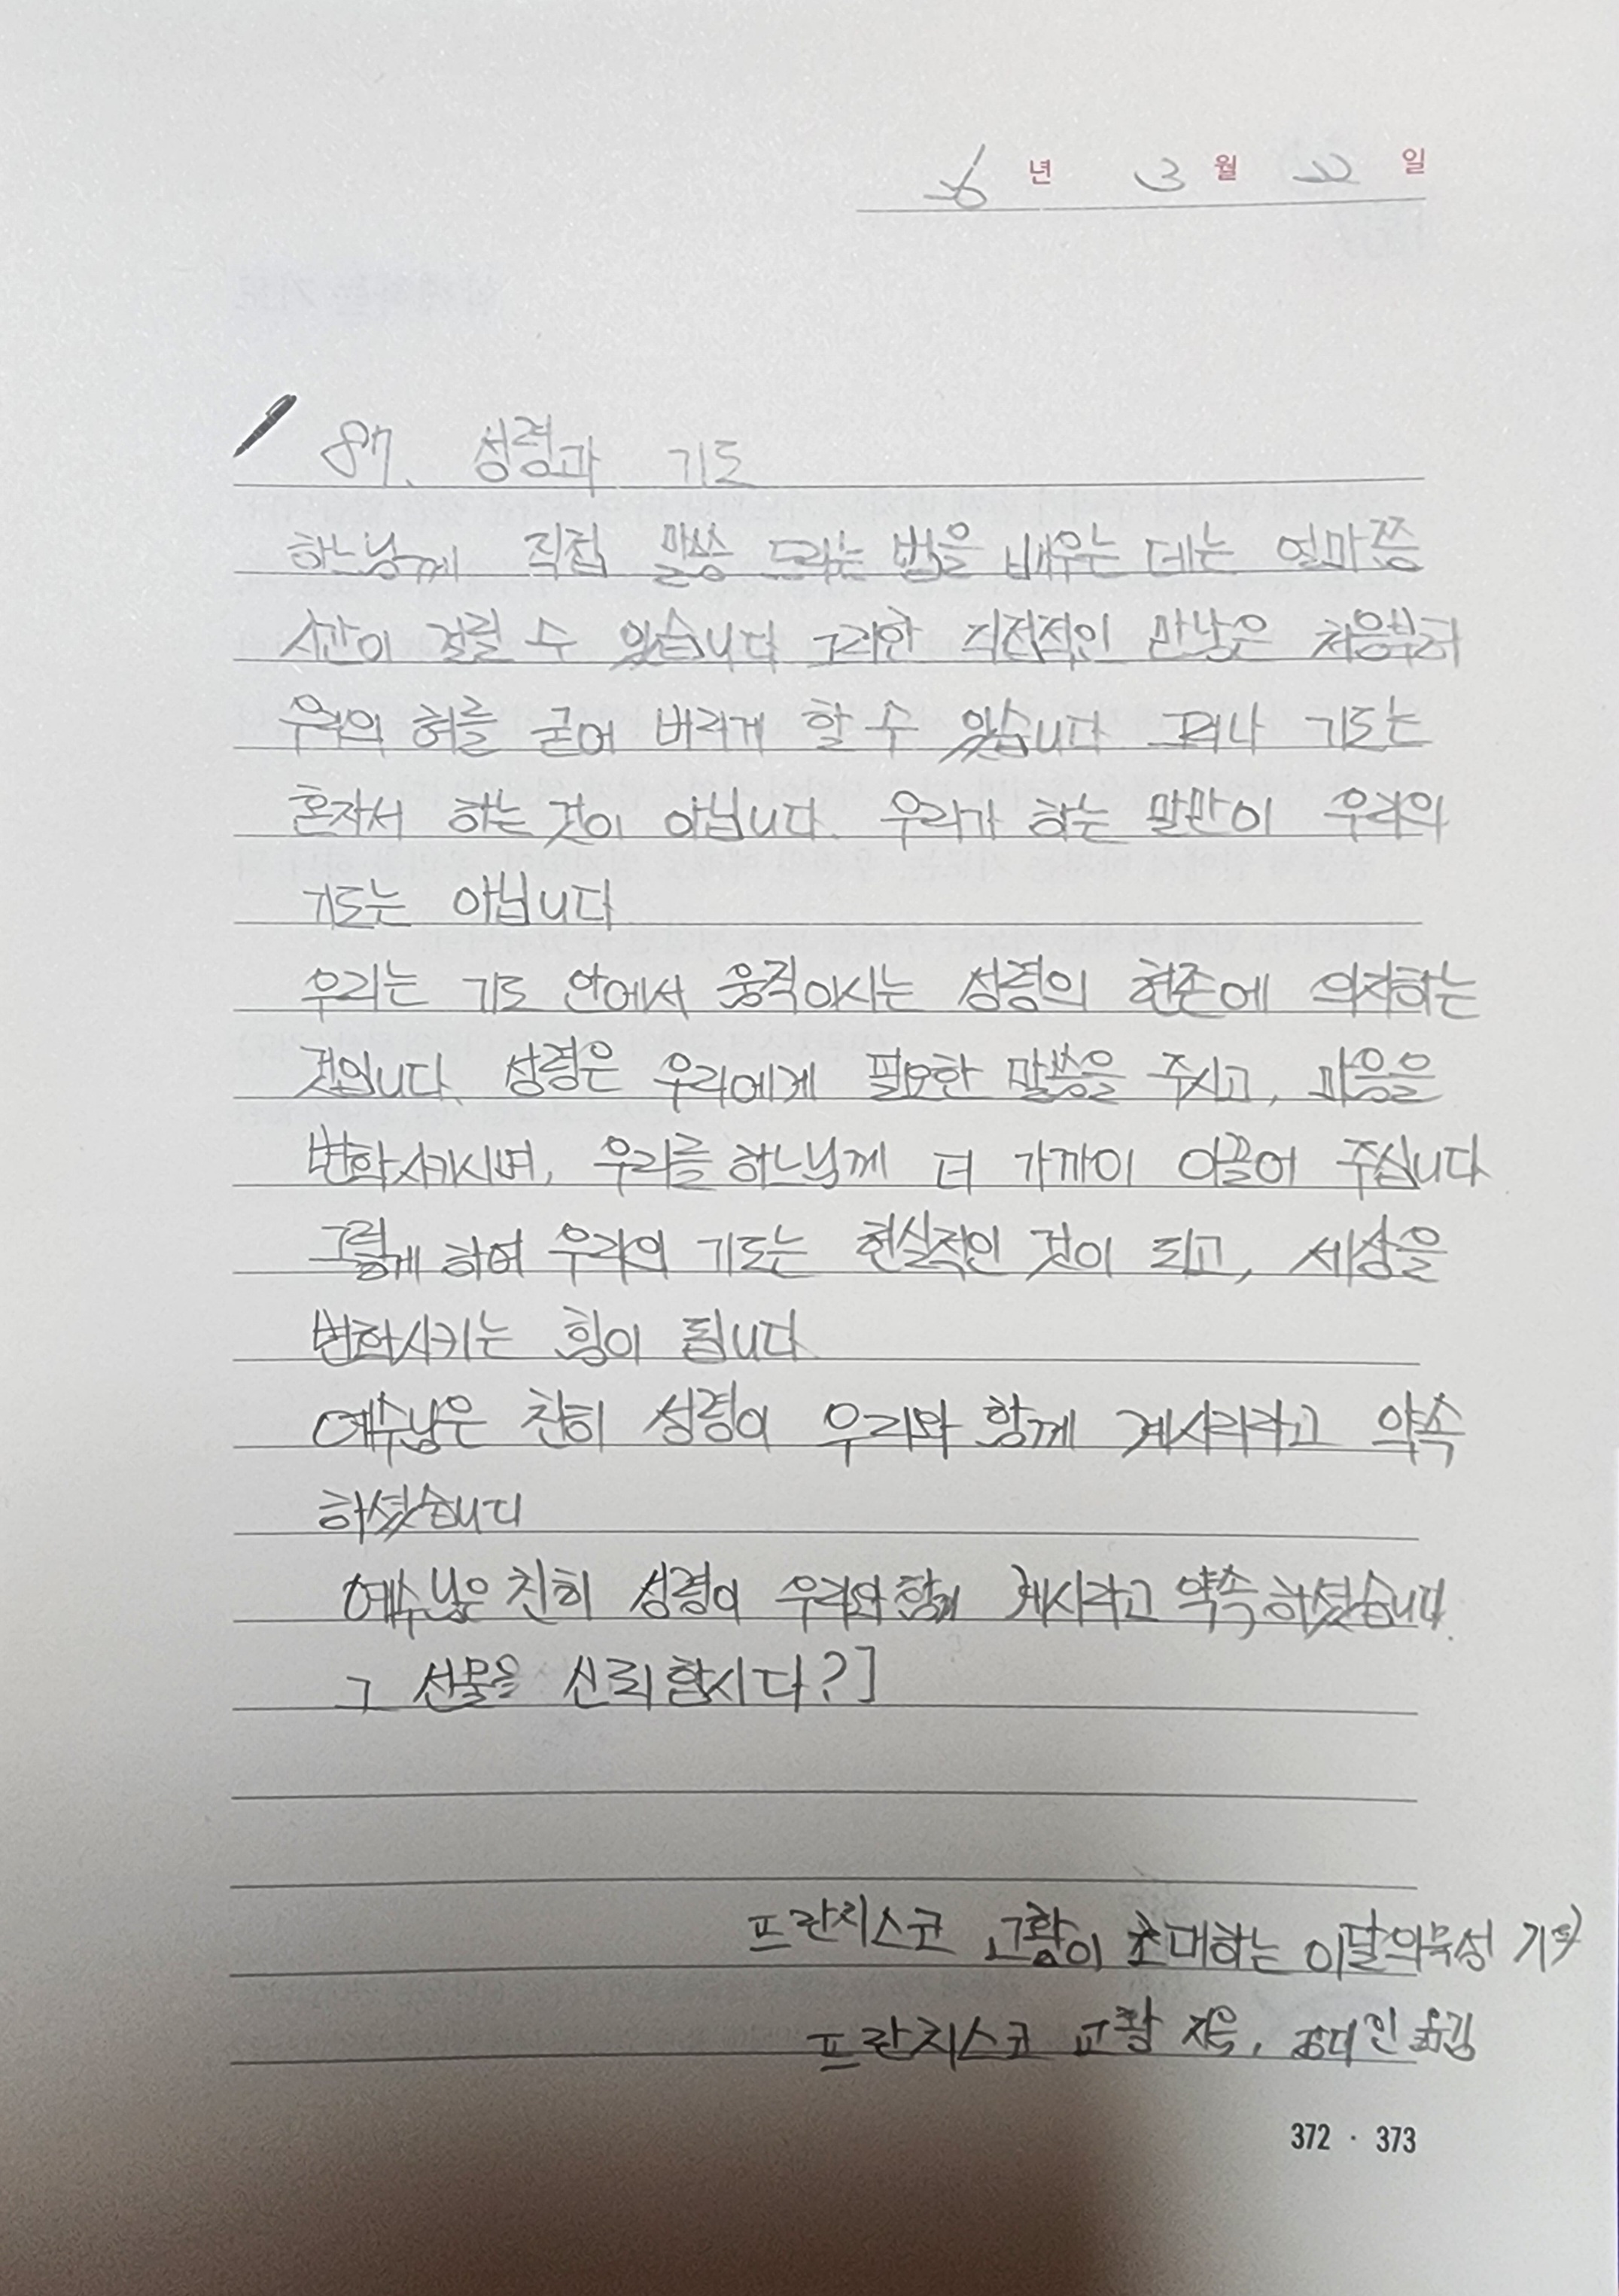 6년 3월 22일
87. 성령과 기도
하느님께 직접 말씀 드리는 법을 배우는 데는 얼마쯤
시간이 걸릴 수 있습니다 그러한 직접적인 만남은 처음부터
우리의 혀를 굳어 버리게 할 수 있습니다 그러나 기도는
혼자서 하는 것이 아닙니다. 우리가 하는 말만이 우리의
기도는 아닙니다
우리는 기도 안에서 움직이시는 성령의 현존에 의지하는
것입니다. 성령은 우리에게 필요한 말씀을 주시고, 마음을
변화시키시며, 우리를 하느님께 더 가까이 이끌어 주십니다
그렇게 하여 우리의 기도는 현실적인 것이 되고, 세상을
변화시키는 힘이 됩니다
예수님은 친히 성령이 우리와 함께 계시리라고 약속
하셨습니다
예수님은 친히 성령이 우리와 함께 계시라고 약속 하셨습니다.
그 선물을 신뢰합시다?]
프란치스코 교황이 초대하는 이달의묵상 기도)
프란치스코 교황 지음, 옮김
372 · 373